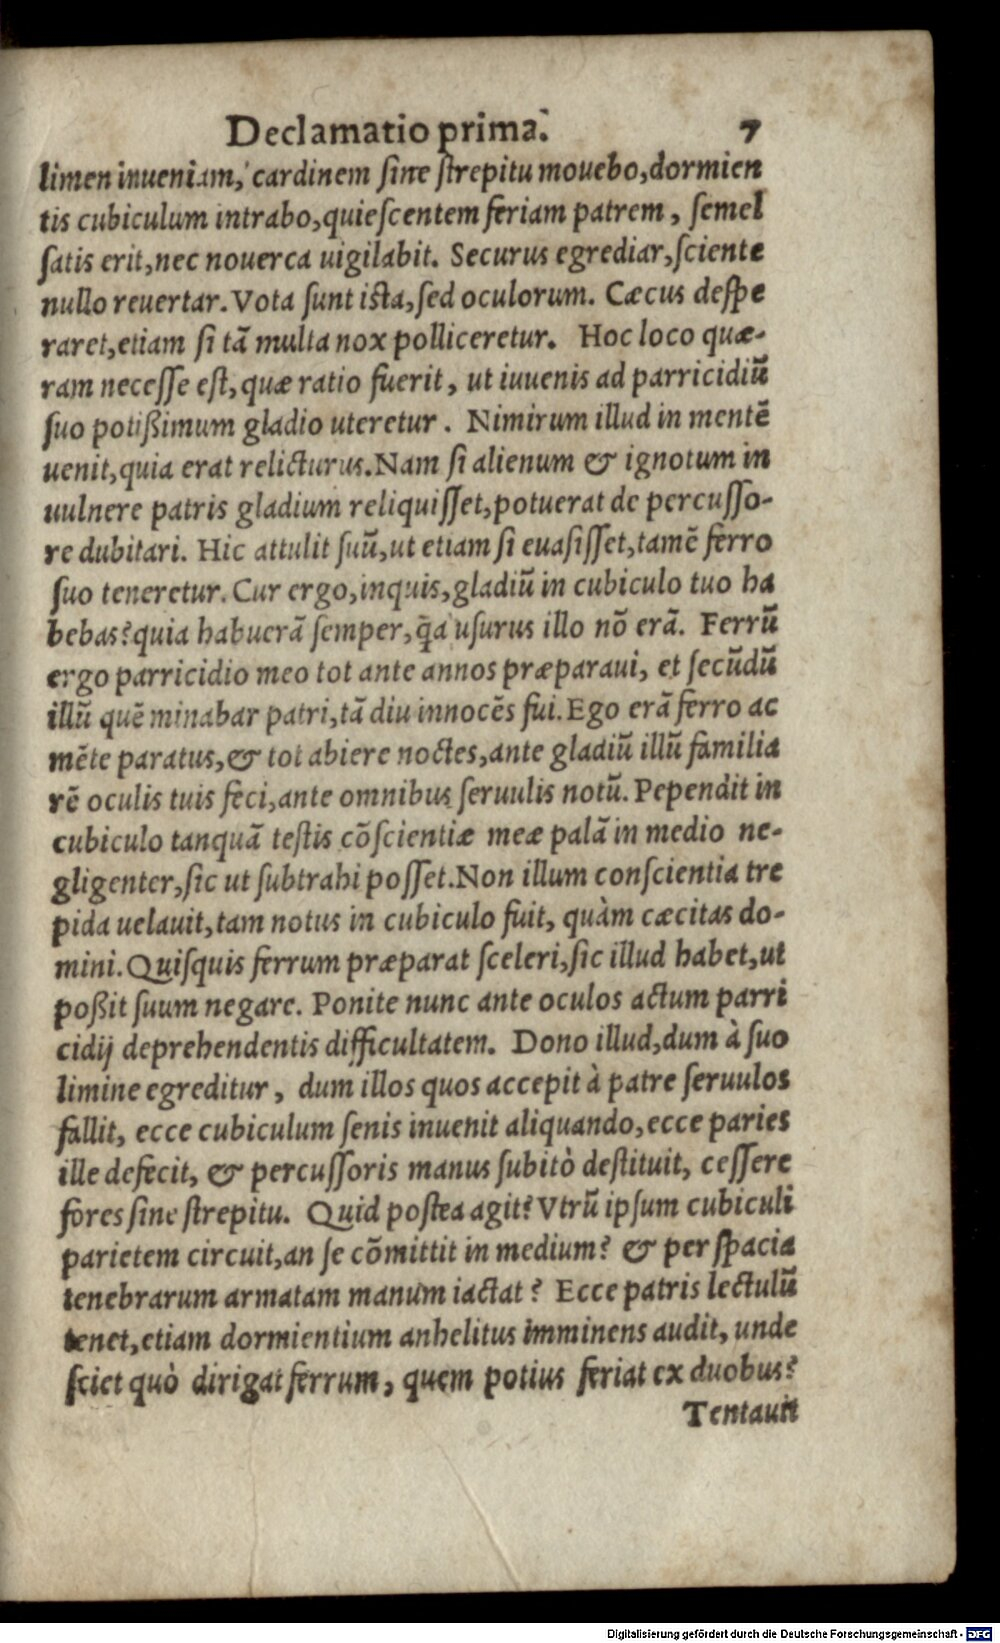 Declamatio prima. 7
limen inueniam, cardinem sine strepitu mouebo, dormien
tis cubiculum intrabo, quiescentem feriam patrem, semel
satis erit, nec nouerca uigilabit. Securus egrediar, sciente
nullo reuertar. Vota sunt ista, sed oculorum. Cæcus despe
raret, etiam si tā multa nox polliceretur. Hoc loco quæ-
ram necesse est, quæ ratio fuerit, ut iuuenis ad parricidiū
suo potißimum gladio uteretur. Nimirum illud in mentē
uenit, quia erat relicturus. Nam si alienum & ignotum in
uulnere patris gladium reliquisset, potuerat de percusso-
re dubitari. Hic attulit suū, ut etiam si euasisset, tamē ferro
suo teneretur. Cur ergo, inquis, gladiū in cubiculo tuo ha
bebas? quia habuerā semper, q̃a usurus illo nō erā. Ferrū
ergo parricidio meo tot ante annos præparaui, et secūdū
illū quē minabar patri, tā diu innocēs fui. Ego erā ferro ac
mēte paratus, & tot abiere noctes, ante gladiū illū familia
rē oculis tuis feci, ante omnibus seruulis notū. Pependit in
cubiculo tanquā testis cōscientiæ meæ palā in medio ne-
gligenter, sic ut subtrahi posset. Non illum conscientia tre
pida uelauit, tam notus in cubiculo fuit, quàm cæcitas do-
mini. Quisquis ferrum præparat sceleri, sic illud habet, ut
poßit suum negare. Ponite nunc ante oculos actum parri
cidij deprehendentis difficultatem. Dono illud, dum à suo
limine egreditur, dum illos quos accepit à patre seruulos
fallit, ecce cubiculum senis inuenit aliquando, ecce paries
ille defecit, & percussoris manus subitò destituit, cessere
fores sine strepitu. Quid postea agit? Vtrū ipsum cubiculi
parietem circuit, an se cōmittit in medium? & per spacia
tenebrarum armatam manum iactat? Ecce patris lectulū
tenet, etiam dormientium anhelitus imminens audit, unde
sciet quò dirigat ferrum, quem potius feriat ex duobus?
Tentauit
Digitalisierung gefördert durch die Deutsche Forschungsgemeinschaft - DFG